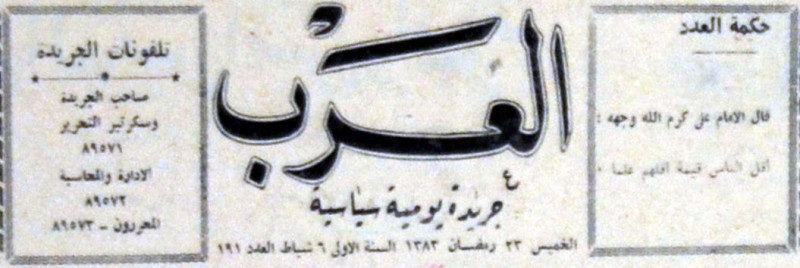 حكمة العدد
قال الامام علي كرم الله وجهه :
أقل الناس قيمة أقلهم علما .
العرب
جريدة يومية سياسية
الخميس ٢٣ رمضان ١٣٨٣ السنة الاولى ٦ شباط العدد ١٩١
تلفونات الجريدة
صاحب الجريدة
وسكرتير التحرير
٨٩٥٧١
الادارة والمحاسبة
٨٩٥٧٢
المحررون - ٨٩٥٧٣